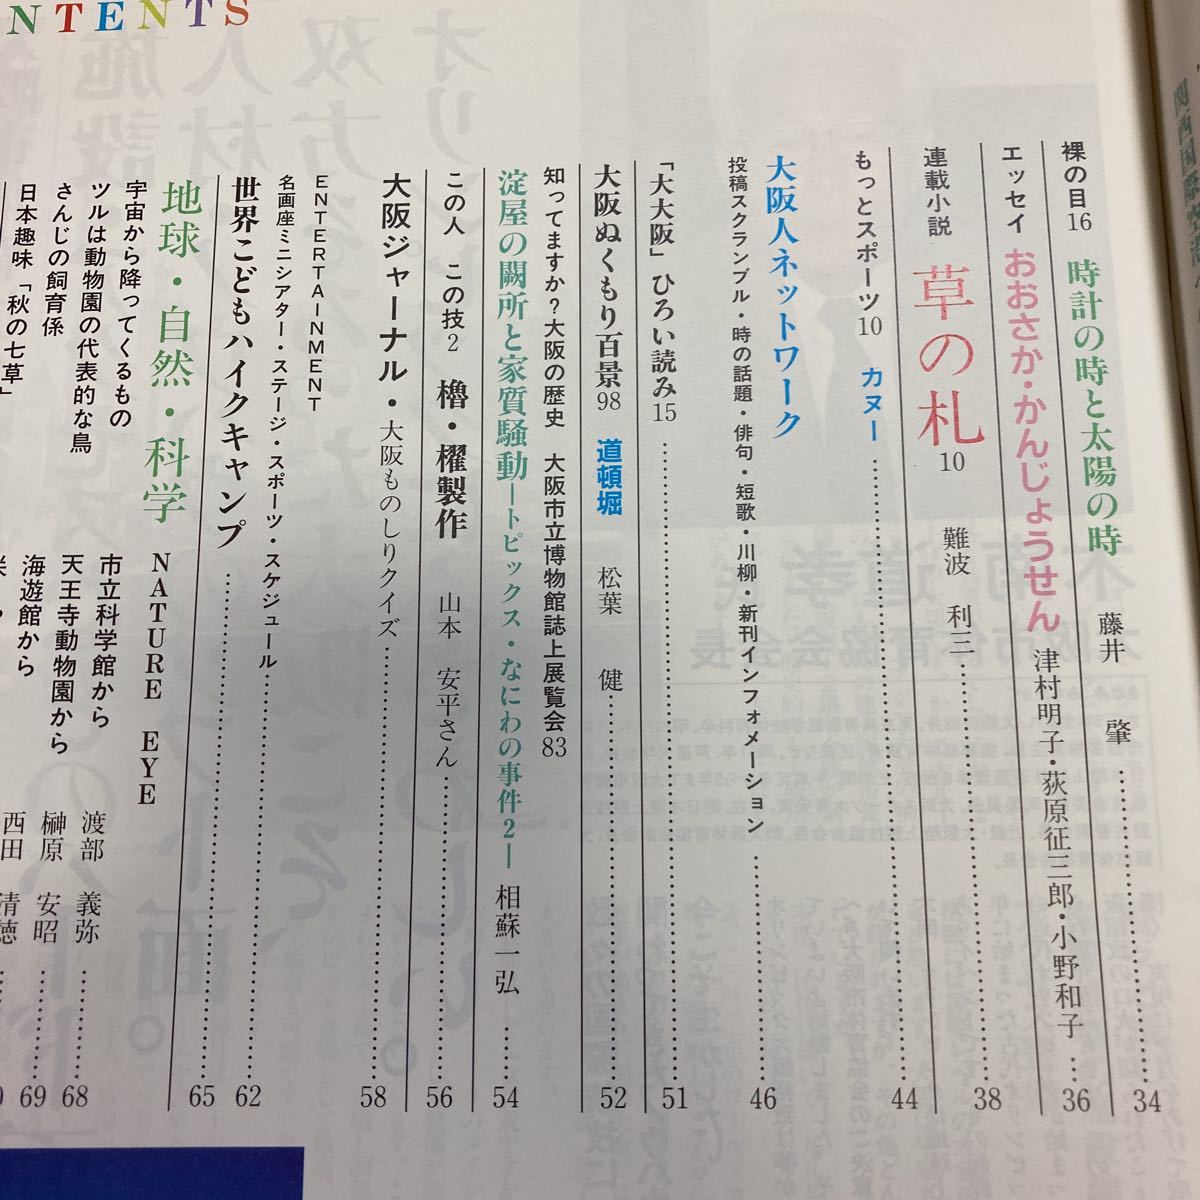 NTENTS
裸の目16 時計の時と太陽の時 藤井 肇 34
エッセイ おおさか・かんじょうせん 津村明子・荻原征三郎・小野和子 36
連載小説 草の札10 難波 利三 38
もっとスポーツ10 カヌー 44
大阪人ネットワーク
投稿スクランブル・時の話題・俳句・短歌・川柳・新刊インフォメーション 46
「大大阪」ひろい読み15 51
大阪ぬくもり百景98 道頓堀 松葉 健 52
知ってますか?大阪の歴史 大阪市立博物館誌上展覧会83
淀屋の闕所と家質騒動―トピックス・なにわの事件2― 相蘇一弘 54
この人 この技2 櫓・櫂製作 山本 安平さん 56
大阪ジャーナル・大阪ものしりクイズ 58
ENTERTAINMENT
名画座ミニシアター・ステージ・スポーツ・スケジュール
世界こどもハイクキャンプ 62
地球・自然・科学 NATURE EYE 65
宇宙から降ってくるもの 市立科学館から 渡部 義弥 68
ツルは動物園の代表的な鳥 天王寺動物園から 榊原 安昭 69
さんじの飼育係 海遊館から 西田 清徳
日本趣味「秋の七草」